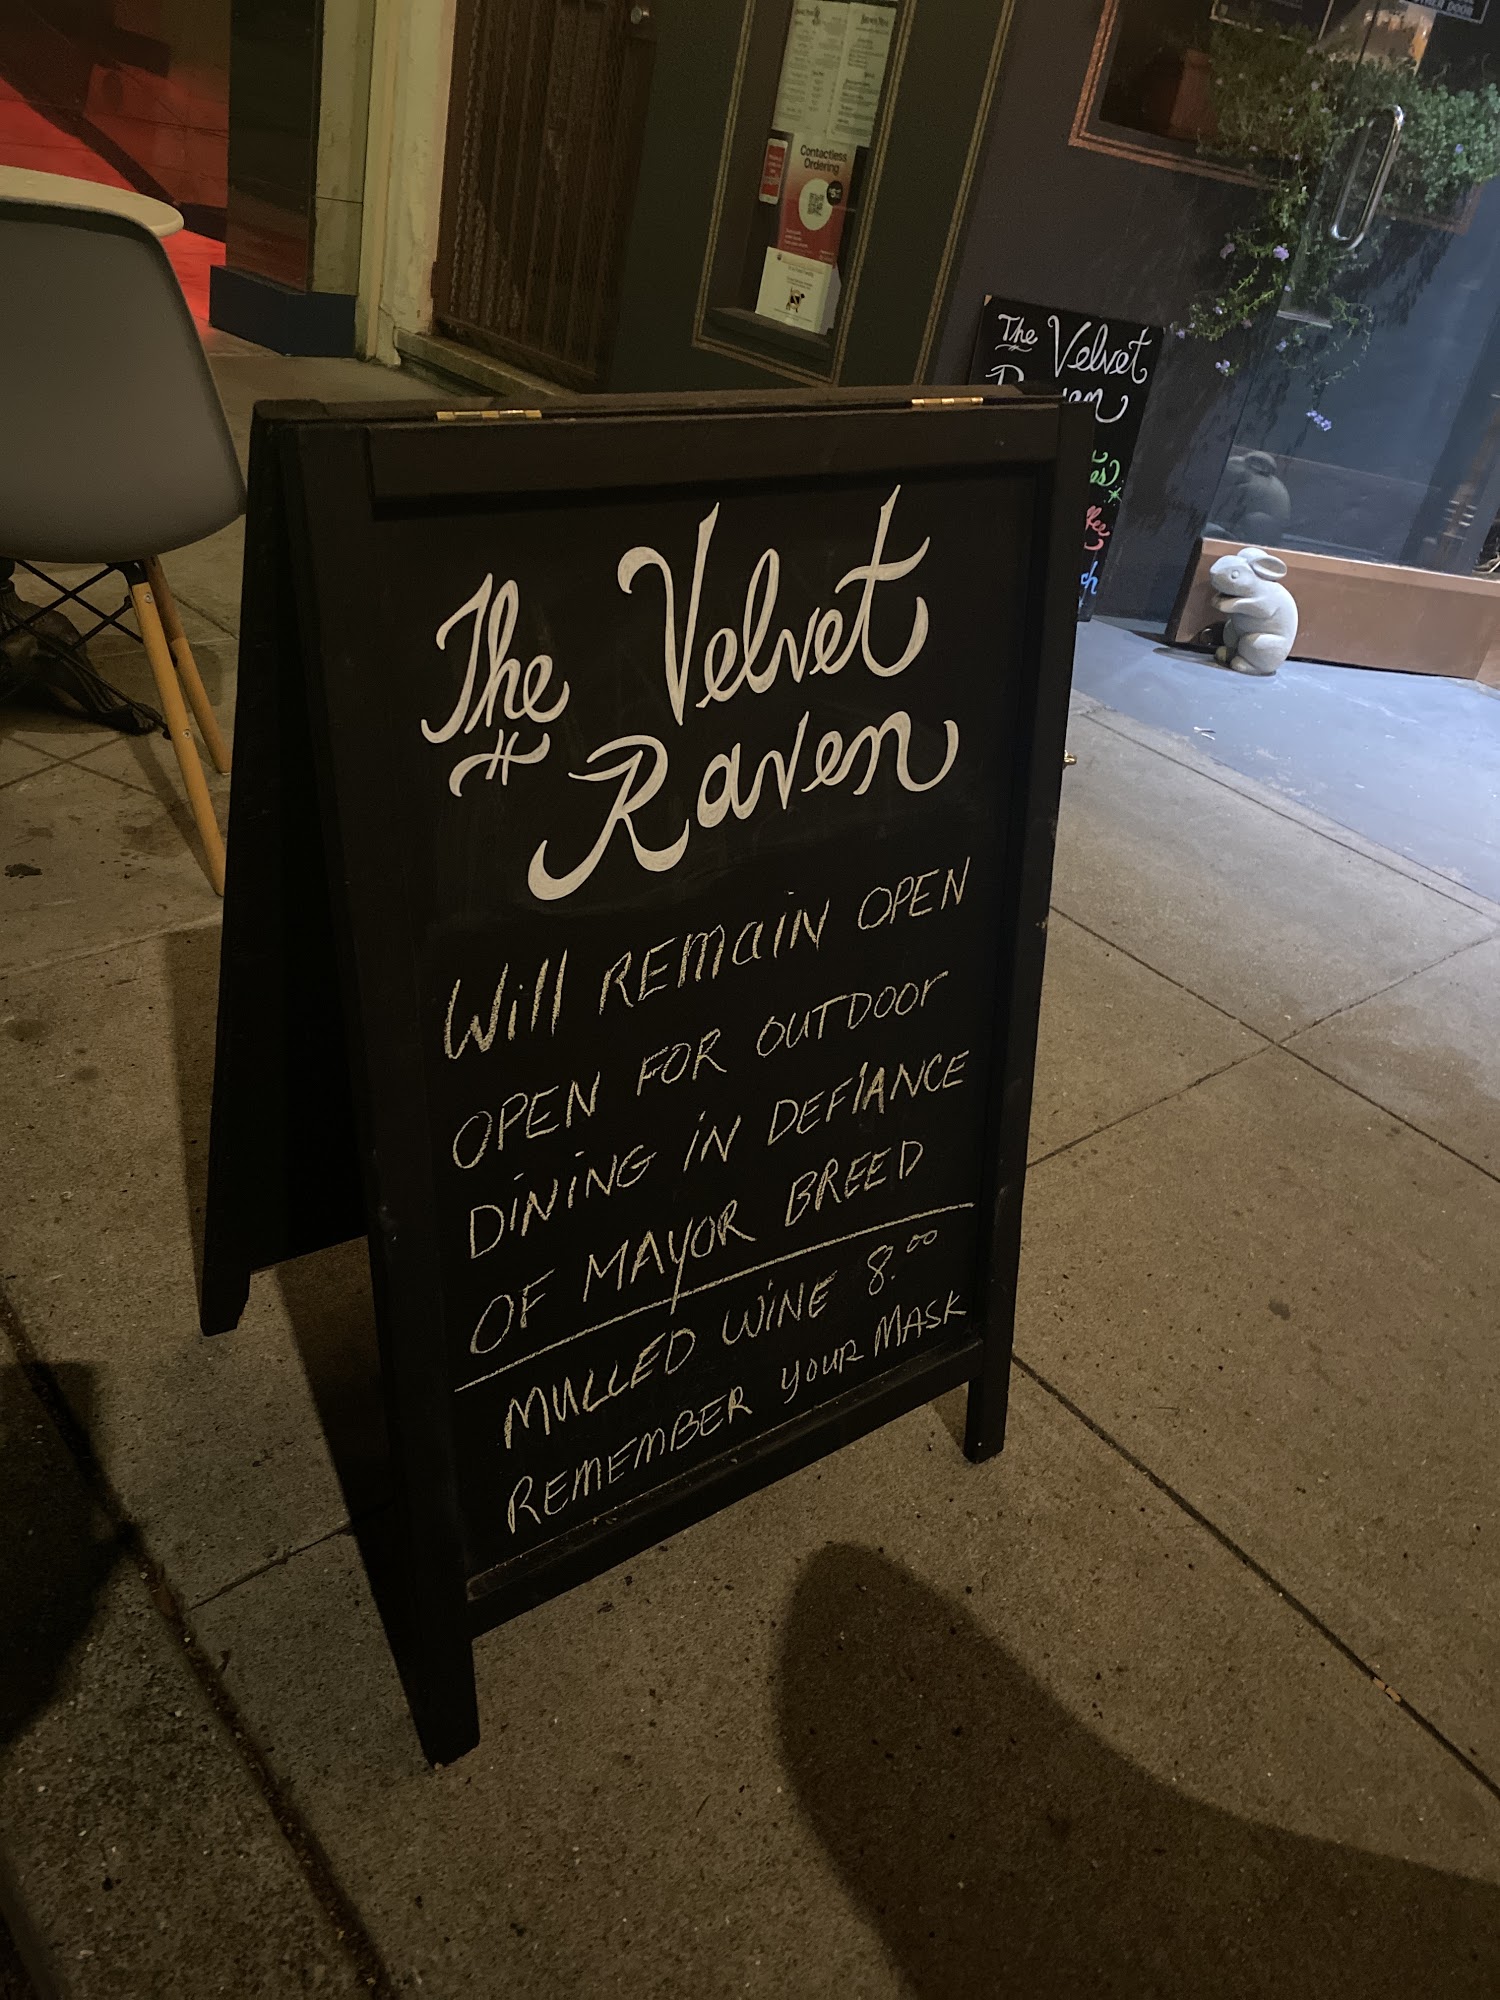 Contactless
Ordering
The Velvet
The Velvet
Raven
Will REMAIN OPEN
OPEN FOR OUTDOOR
DINING IN DEFIANCE
OF MAYOR BREED
MULLED WINE 8.00
REMEMBER YOUR MASK